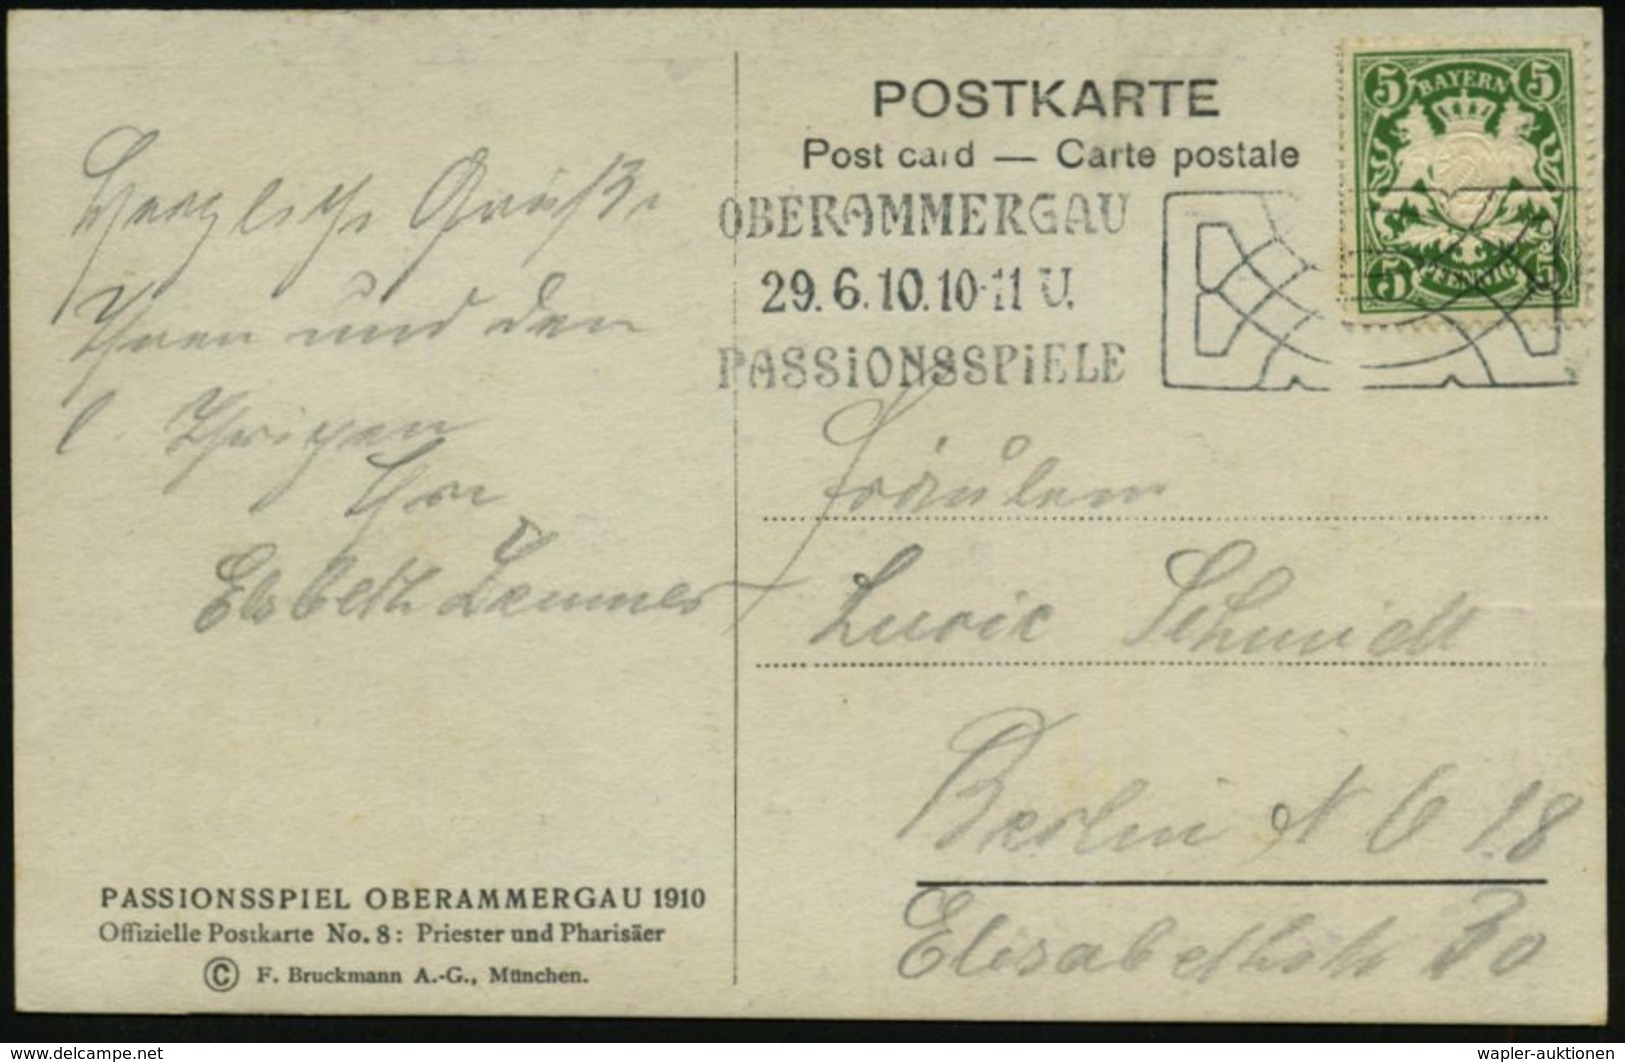 POSTKARTE
Post card — Carte postale
5 BAYERN 5
5 PFENNIG 5
OBERAMMERGAU
29.6.10.10-11 U.
PASSIONSSPiELE
Herzliche Grüße
Ihnen und den
l. Ihrigen
Ihre
Elsbeth
Fräulein
Schmidt
Berlin N O 18
Elisabethstr 30
PASSIONSSPIEL OBERAMMERGAU 1910
Offizielle Postkarte No. 8: Priester und Pharisäer
© F. Bruckmann A.-G., München.
www.delcampe.net
wapler-auktionen